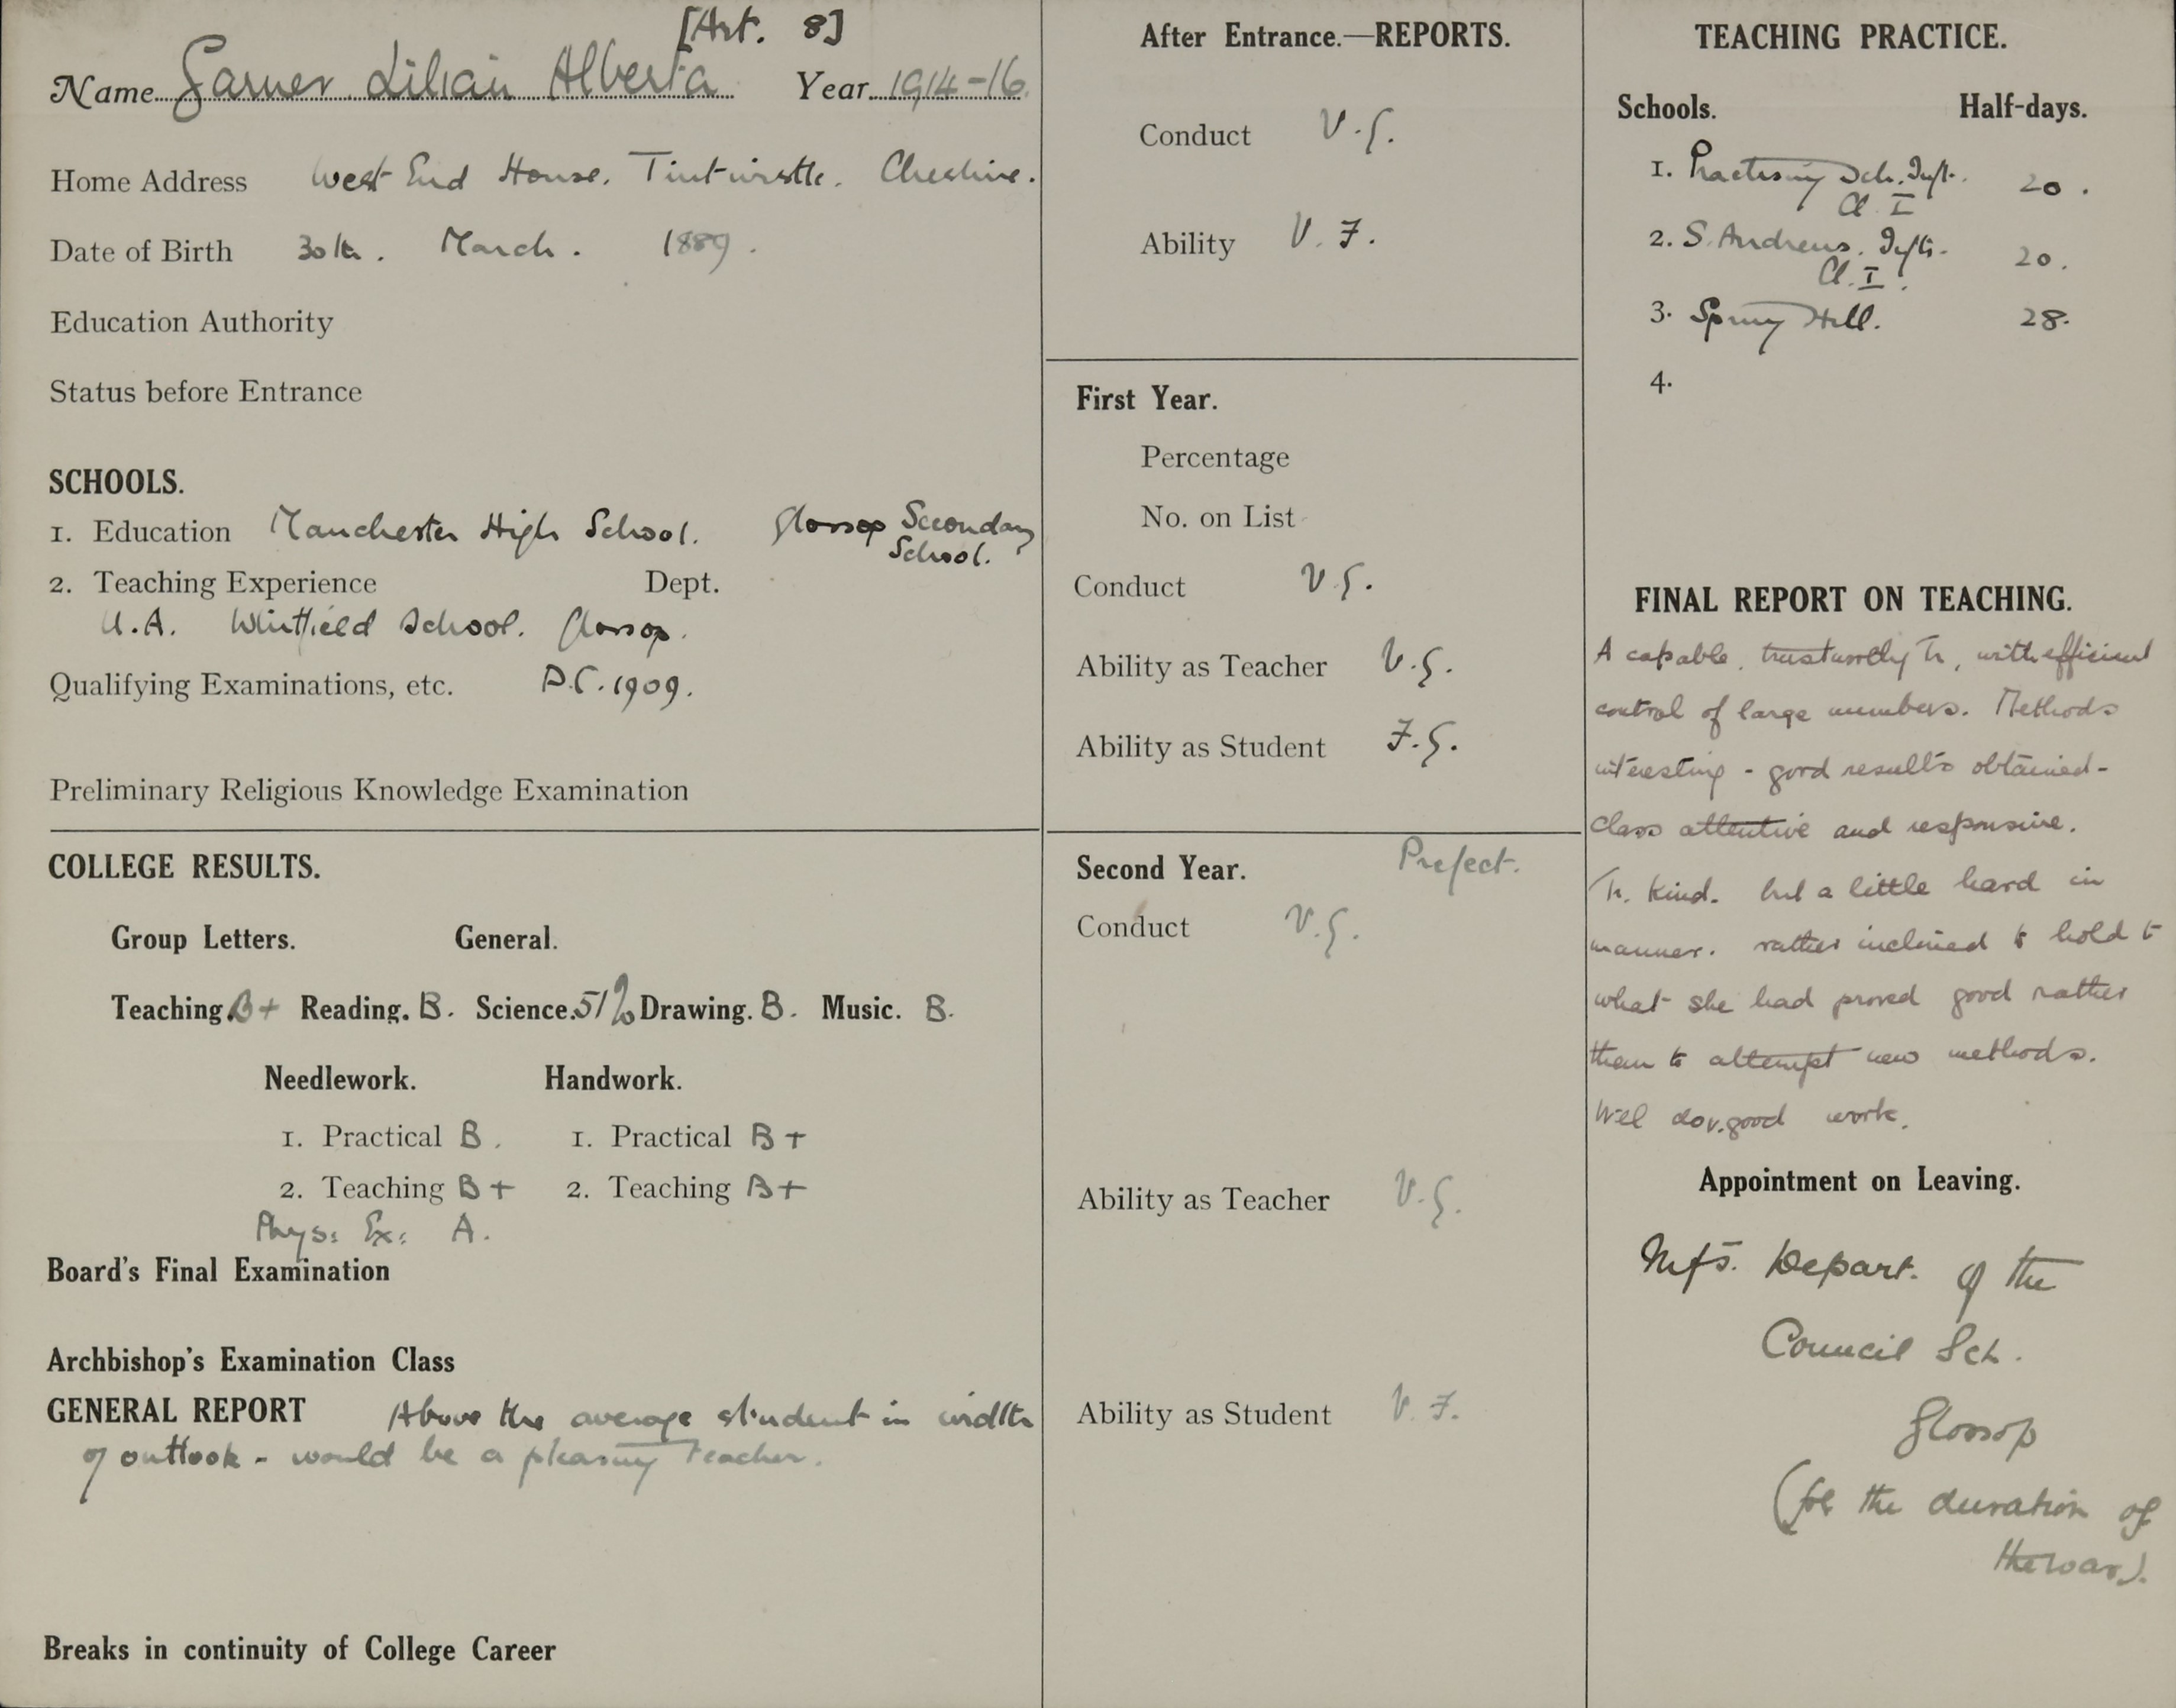 [Art. 8]
Name Garner Lilian Alberta Year 1914-16.
Home Address West End House. Tintwistle. Cheshire.
Date of Birth 30th. March. 1889.
Education Authority
Status before Entrance
SCHOOLS.
1. Education Manchester High School. Glossop Secondary
School.
2. Teaching Experience Dept.
U.A. Whitfield School. Glossop.
Qualifying Examinations, etc. P.C. 1909.
Preliminary Religious Knowledge Examination
COLLEGE RESULTS.
Group Letters. General.
Teaching. B+ Reading. B. Science. 51% Drawing. B. Music. B.
Needlework. Handwork.
1. Practical B. 1. Practical B+
2. Teaching B+ 2. Teaching B+
Phys: Ex: A.
Board's Final Examination
Archbishop's Examination Class
GENERAL REPORT Above the average student in width
of outlook - would be a pleasing teacher.
Breaks in continuity of College Career
After Entrance.—REPORTS.
Conduct V.G.
Ability V.F.
First Year.
Percentage
No. on List
Conduct V.G.
Ability as Teacher V.G.
Ability as Student F.G.
Second Year. Prefect.
Conduct V.G.
Ability as Teacher V.G.
Ability as Student V.F.
TEACHING PRACTICE.
Schools. Half-days.
1. Practising Sch. Inft. 20.
Cl. I
2. S. Andrews. Infts. 20.
Cl. I.
3. Spring Hill. 28.
4.
FINAL REPORT ON TEACHING.
A capable, trustworthy Tr, with efficient
control of large numbers. Methods
interesting - good results obtained -
class attentive and responsive.
Tr. kind. but a little hard in
manner. rather inclined to hold to
what she had proved good rather
than to attempt new methods.
Will do v. good work.
Appointment on Leaving.
Infs. Depart. of the
Council Sch.
Glossop
(for the duration of
the war).